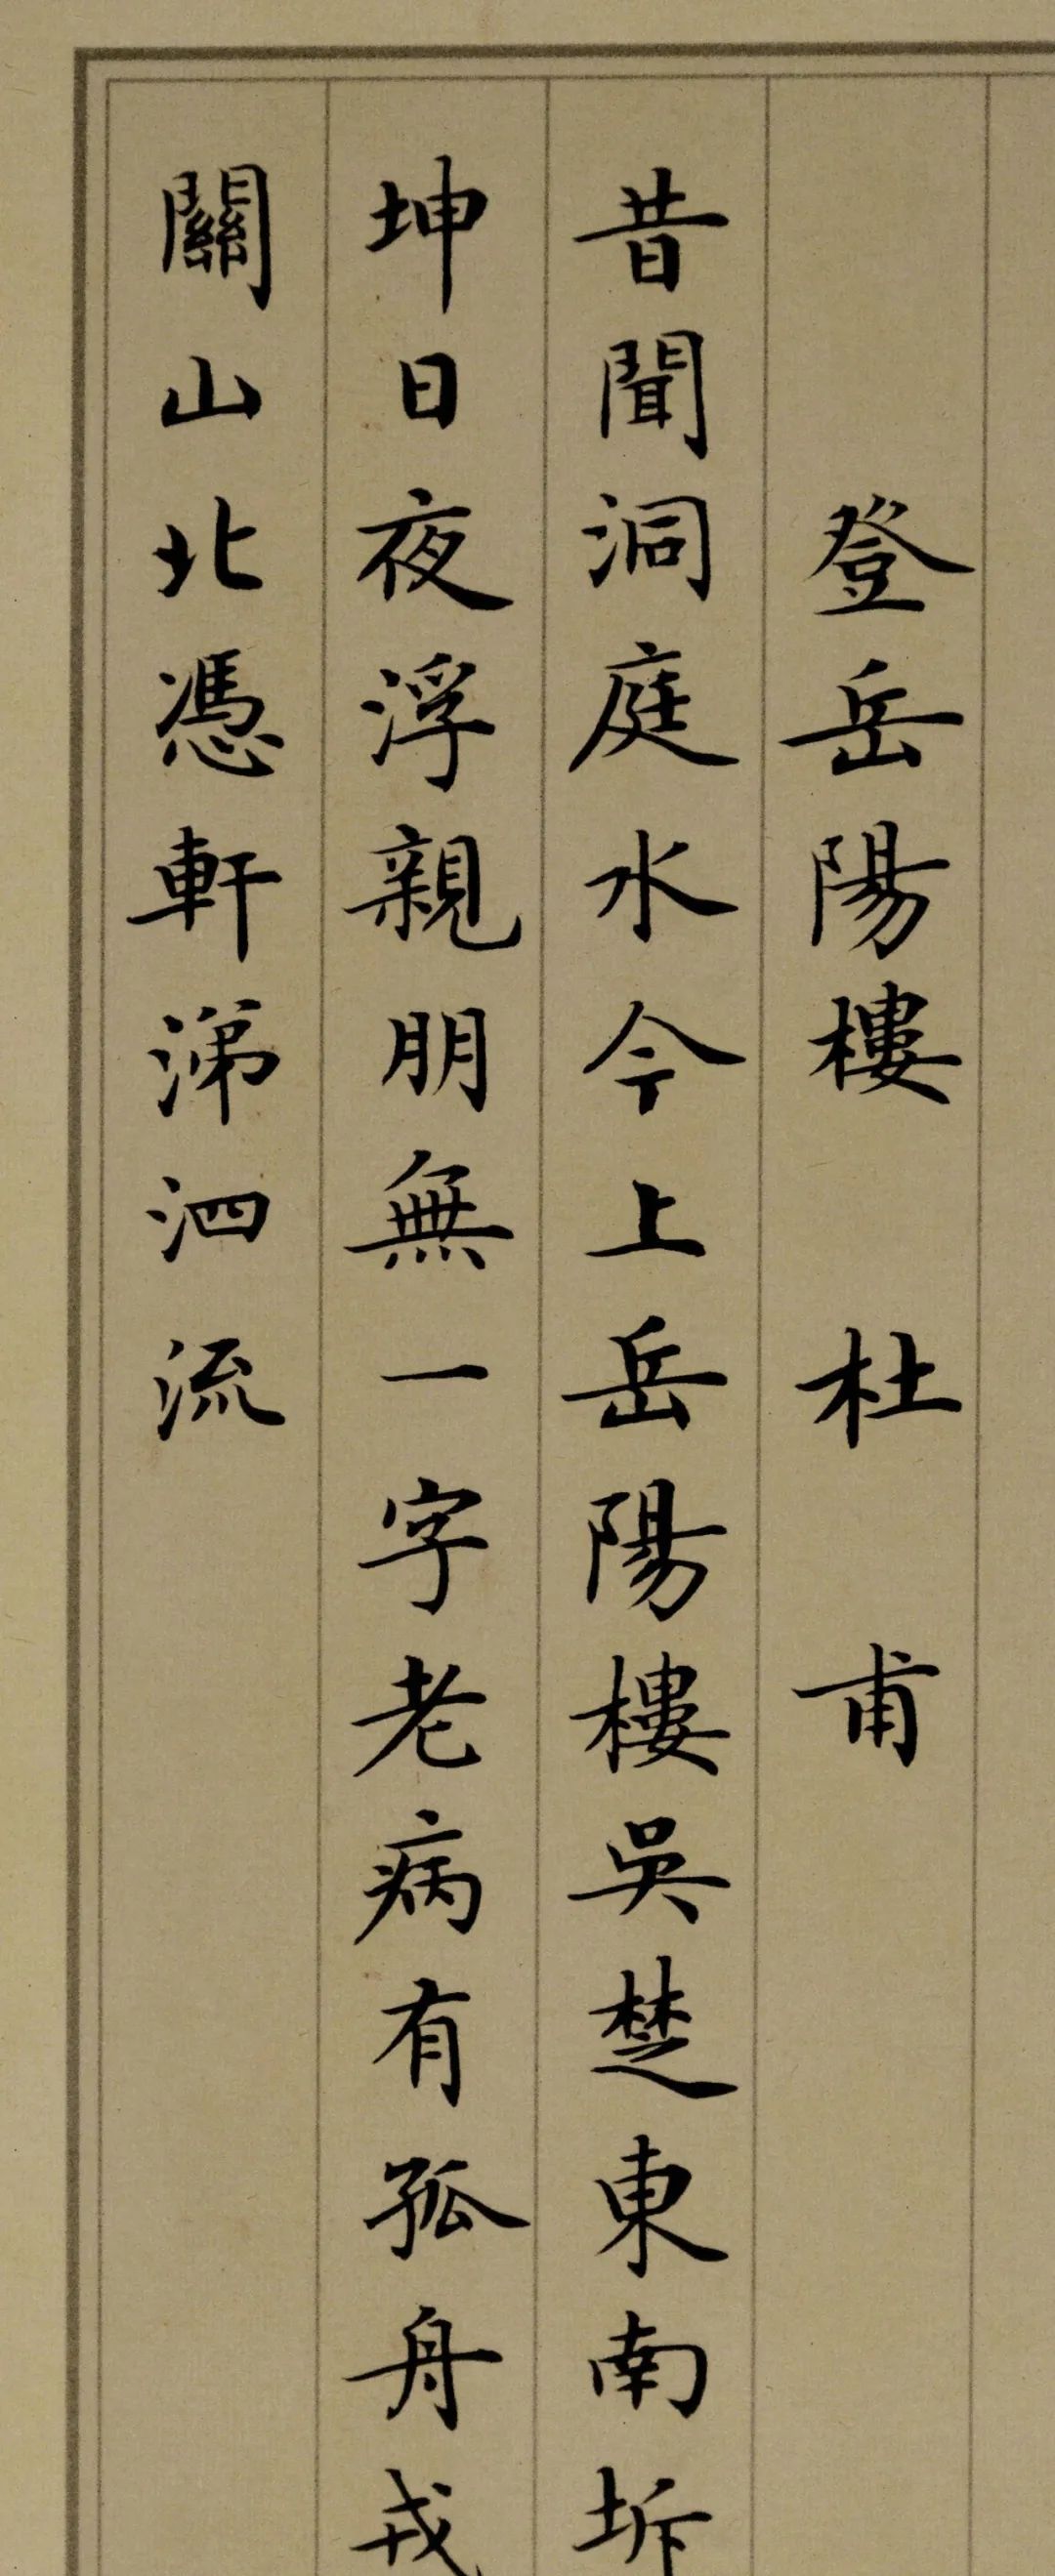 登岳陽樓 杜甫
昔聞洞庭水今上岳陽樓吳楚東南坼
坤日夜浮親朋無一字老病有孤舟戎
關山北憑軒涕泗流